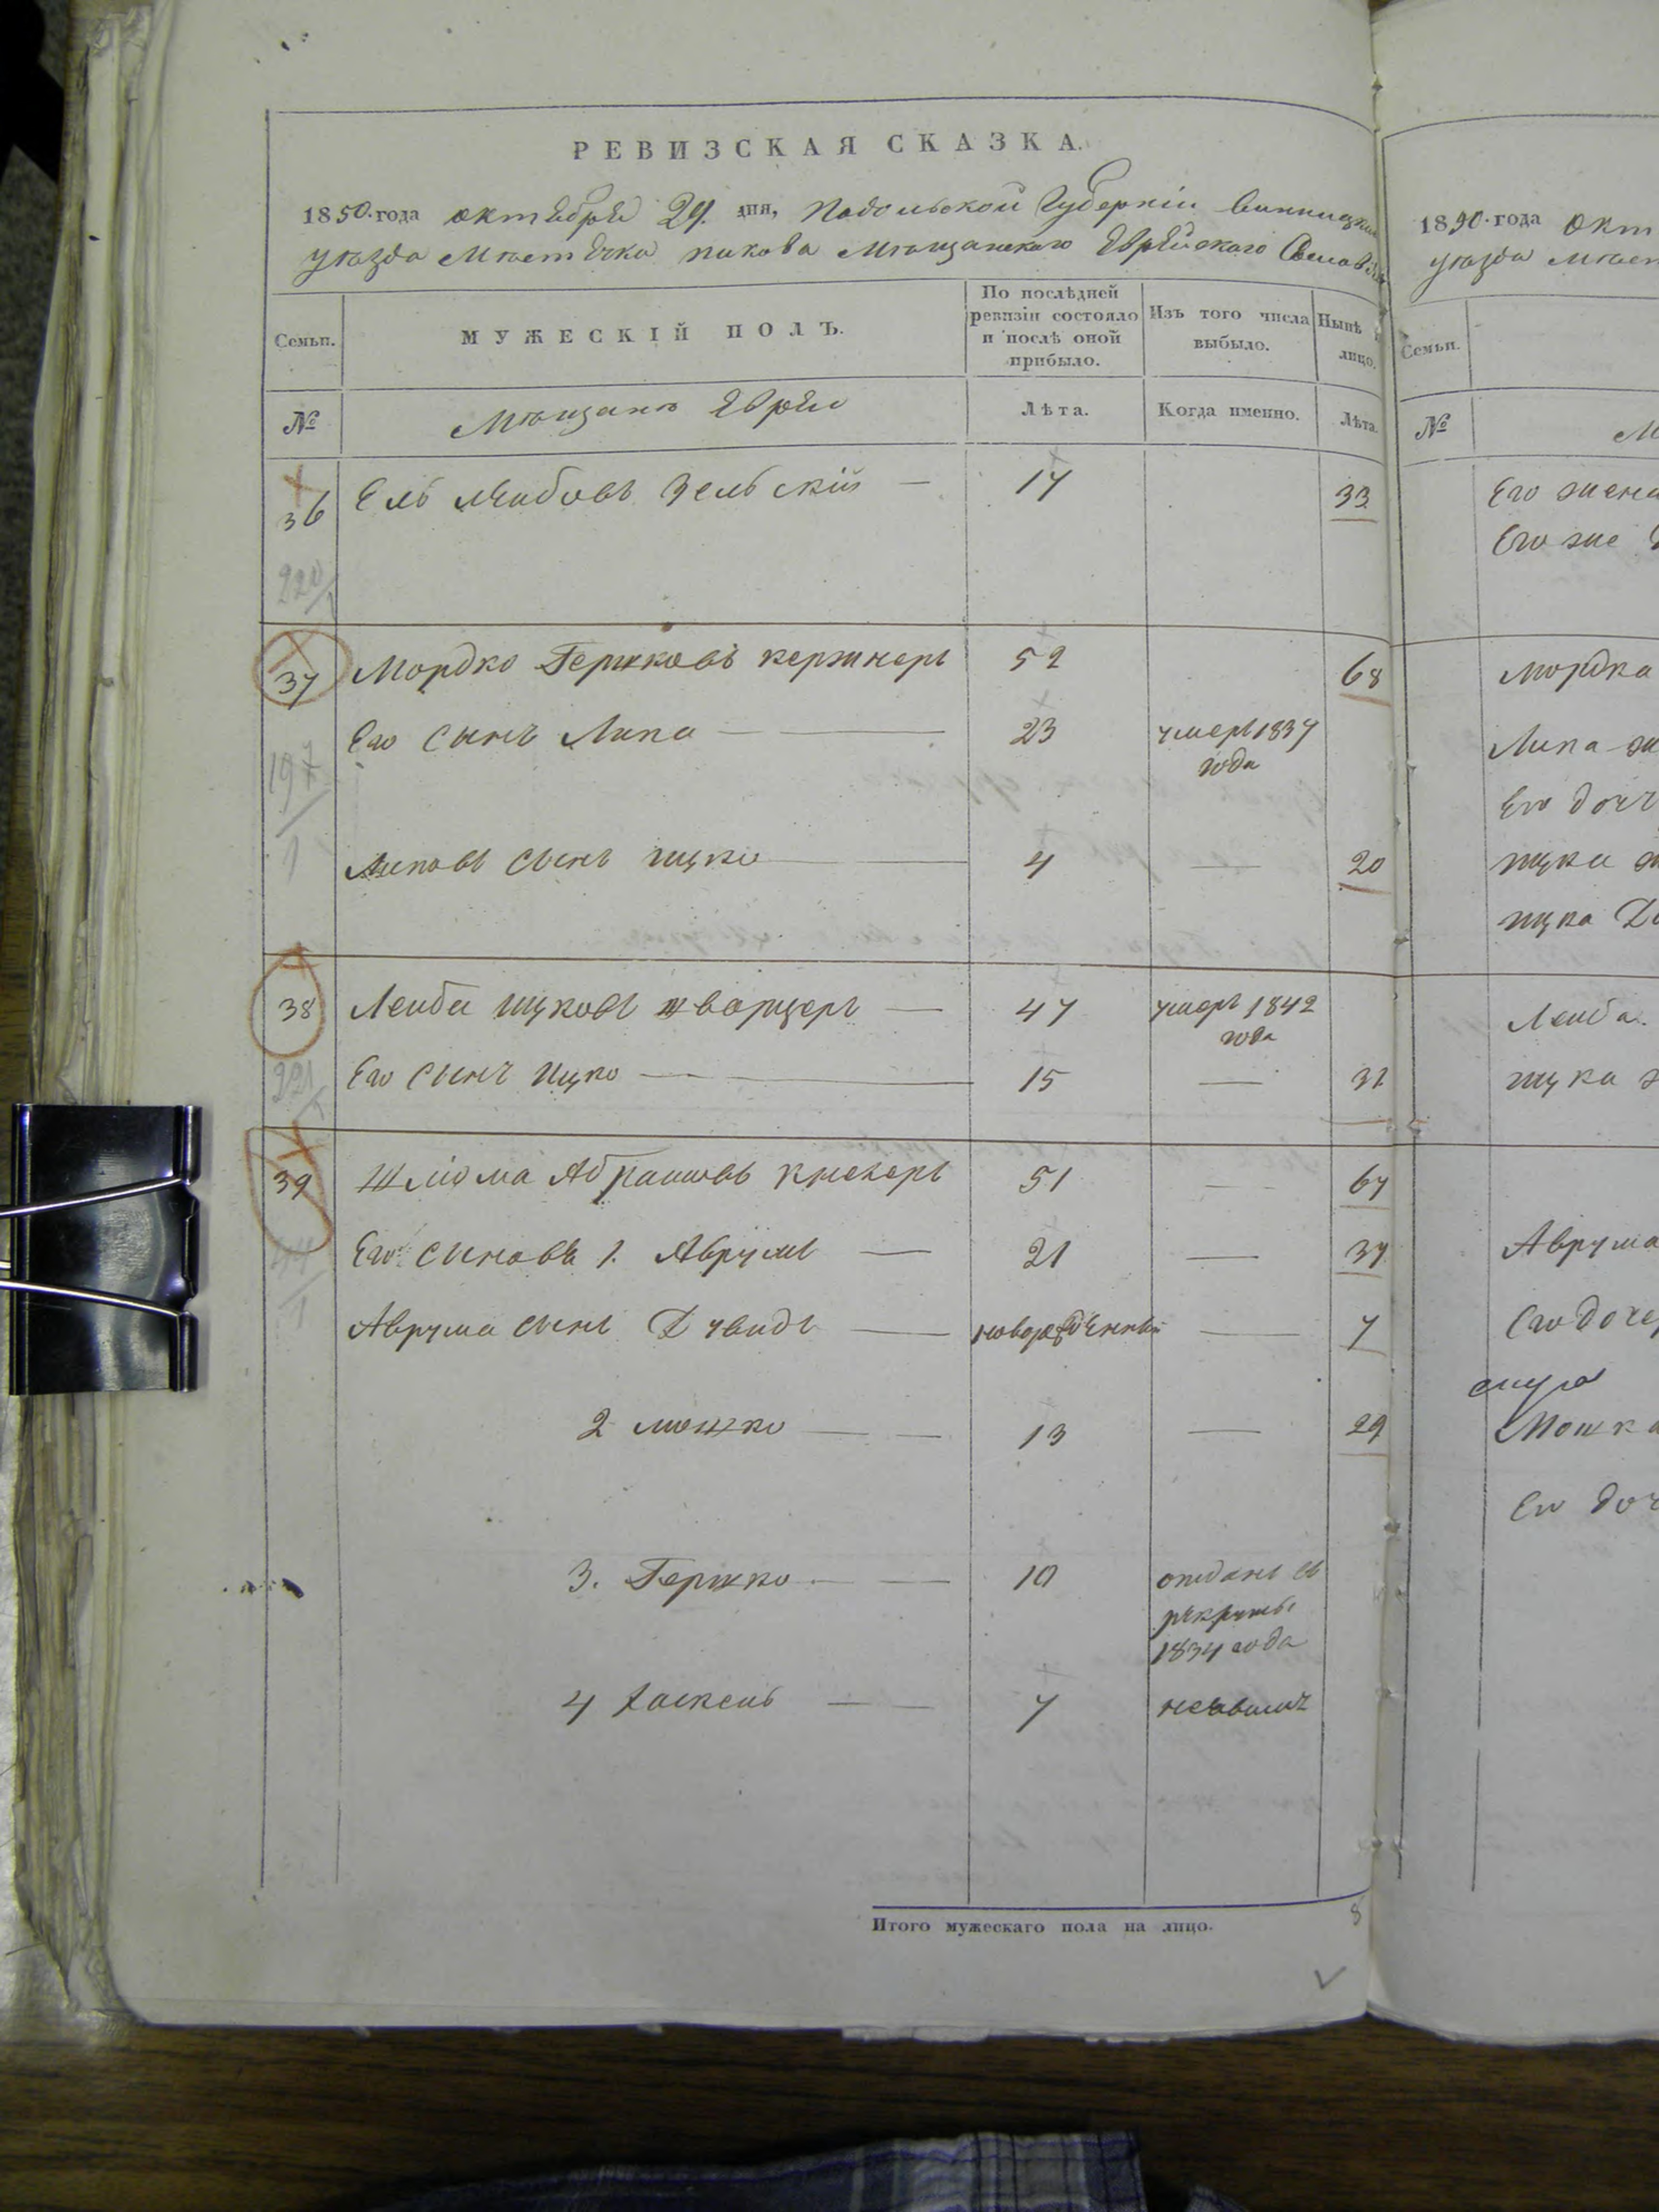 РЕВИЗСКАЯ СКАЗКА.
1850 года октября 29. дня, Подольской Губерніи Винницкаго
уѣзда мѣстечка Пикова Мѣщанскаго Еврѣйскаго Сословія
Семьи. МУЖЕСКІЙ ПОЛЪ. По послѣдней ревизіи состояло и послѣ оной прибыло. Изъ того числа выбыло. Нынѣ на лицо.
№ Мѣщане Евреи Лѣта. Когда именно. Лѣта.
36 Ель Лейбовъ Зельскій — 17 33
220/1
37 Мордко Гершковъ Кержнеръ 52 68
Его сынъ Липа — 23 умеръ 1837
года
197/1
Липовъ сынъ Ицко — 4 — 20
38 Лейба Ицковъ Шварцеръ — 47 умеръ 1842
года
221/1
Его сынъ Ицко — 15 — 31
39 Шлома Абрамовъ 51 — 67
Его сыновья 1. Аврумъ — 21 — 37
Аврума сынъ Дувидъ — новорожденный — 7
2 Мошко — — 13 — 29
3. Гершко — — 10 отданъ въ
рекруты
1834 года
4 Хаскель — — 7 неявился
Итого мужескаго пола на лицо. 8
1850 года Окт
уѣзда мѣст
Семьи.
№ М
Его жена
Его же
Мордка
Липа
Его доч
Ицка
Ицка
Лейба.
Ицка
Аврума
Его доче
Мошка
Его доч